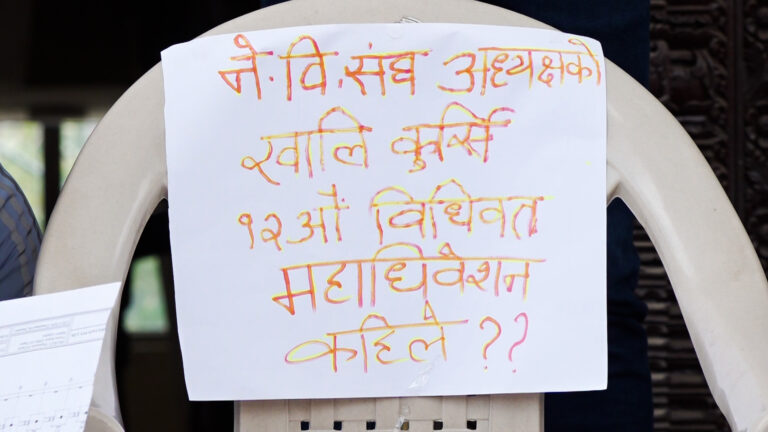 ने.वि.संघ अध्यक्षको
खालि कुर्सि
१२औं विधिवत
महाधिवेशन
कहिले ??